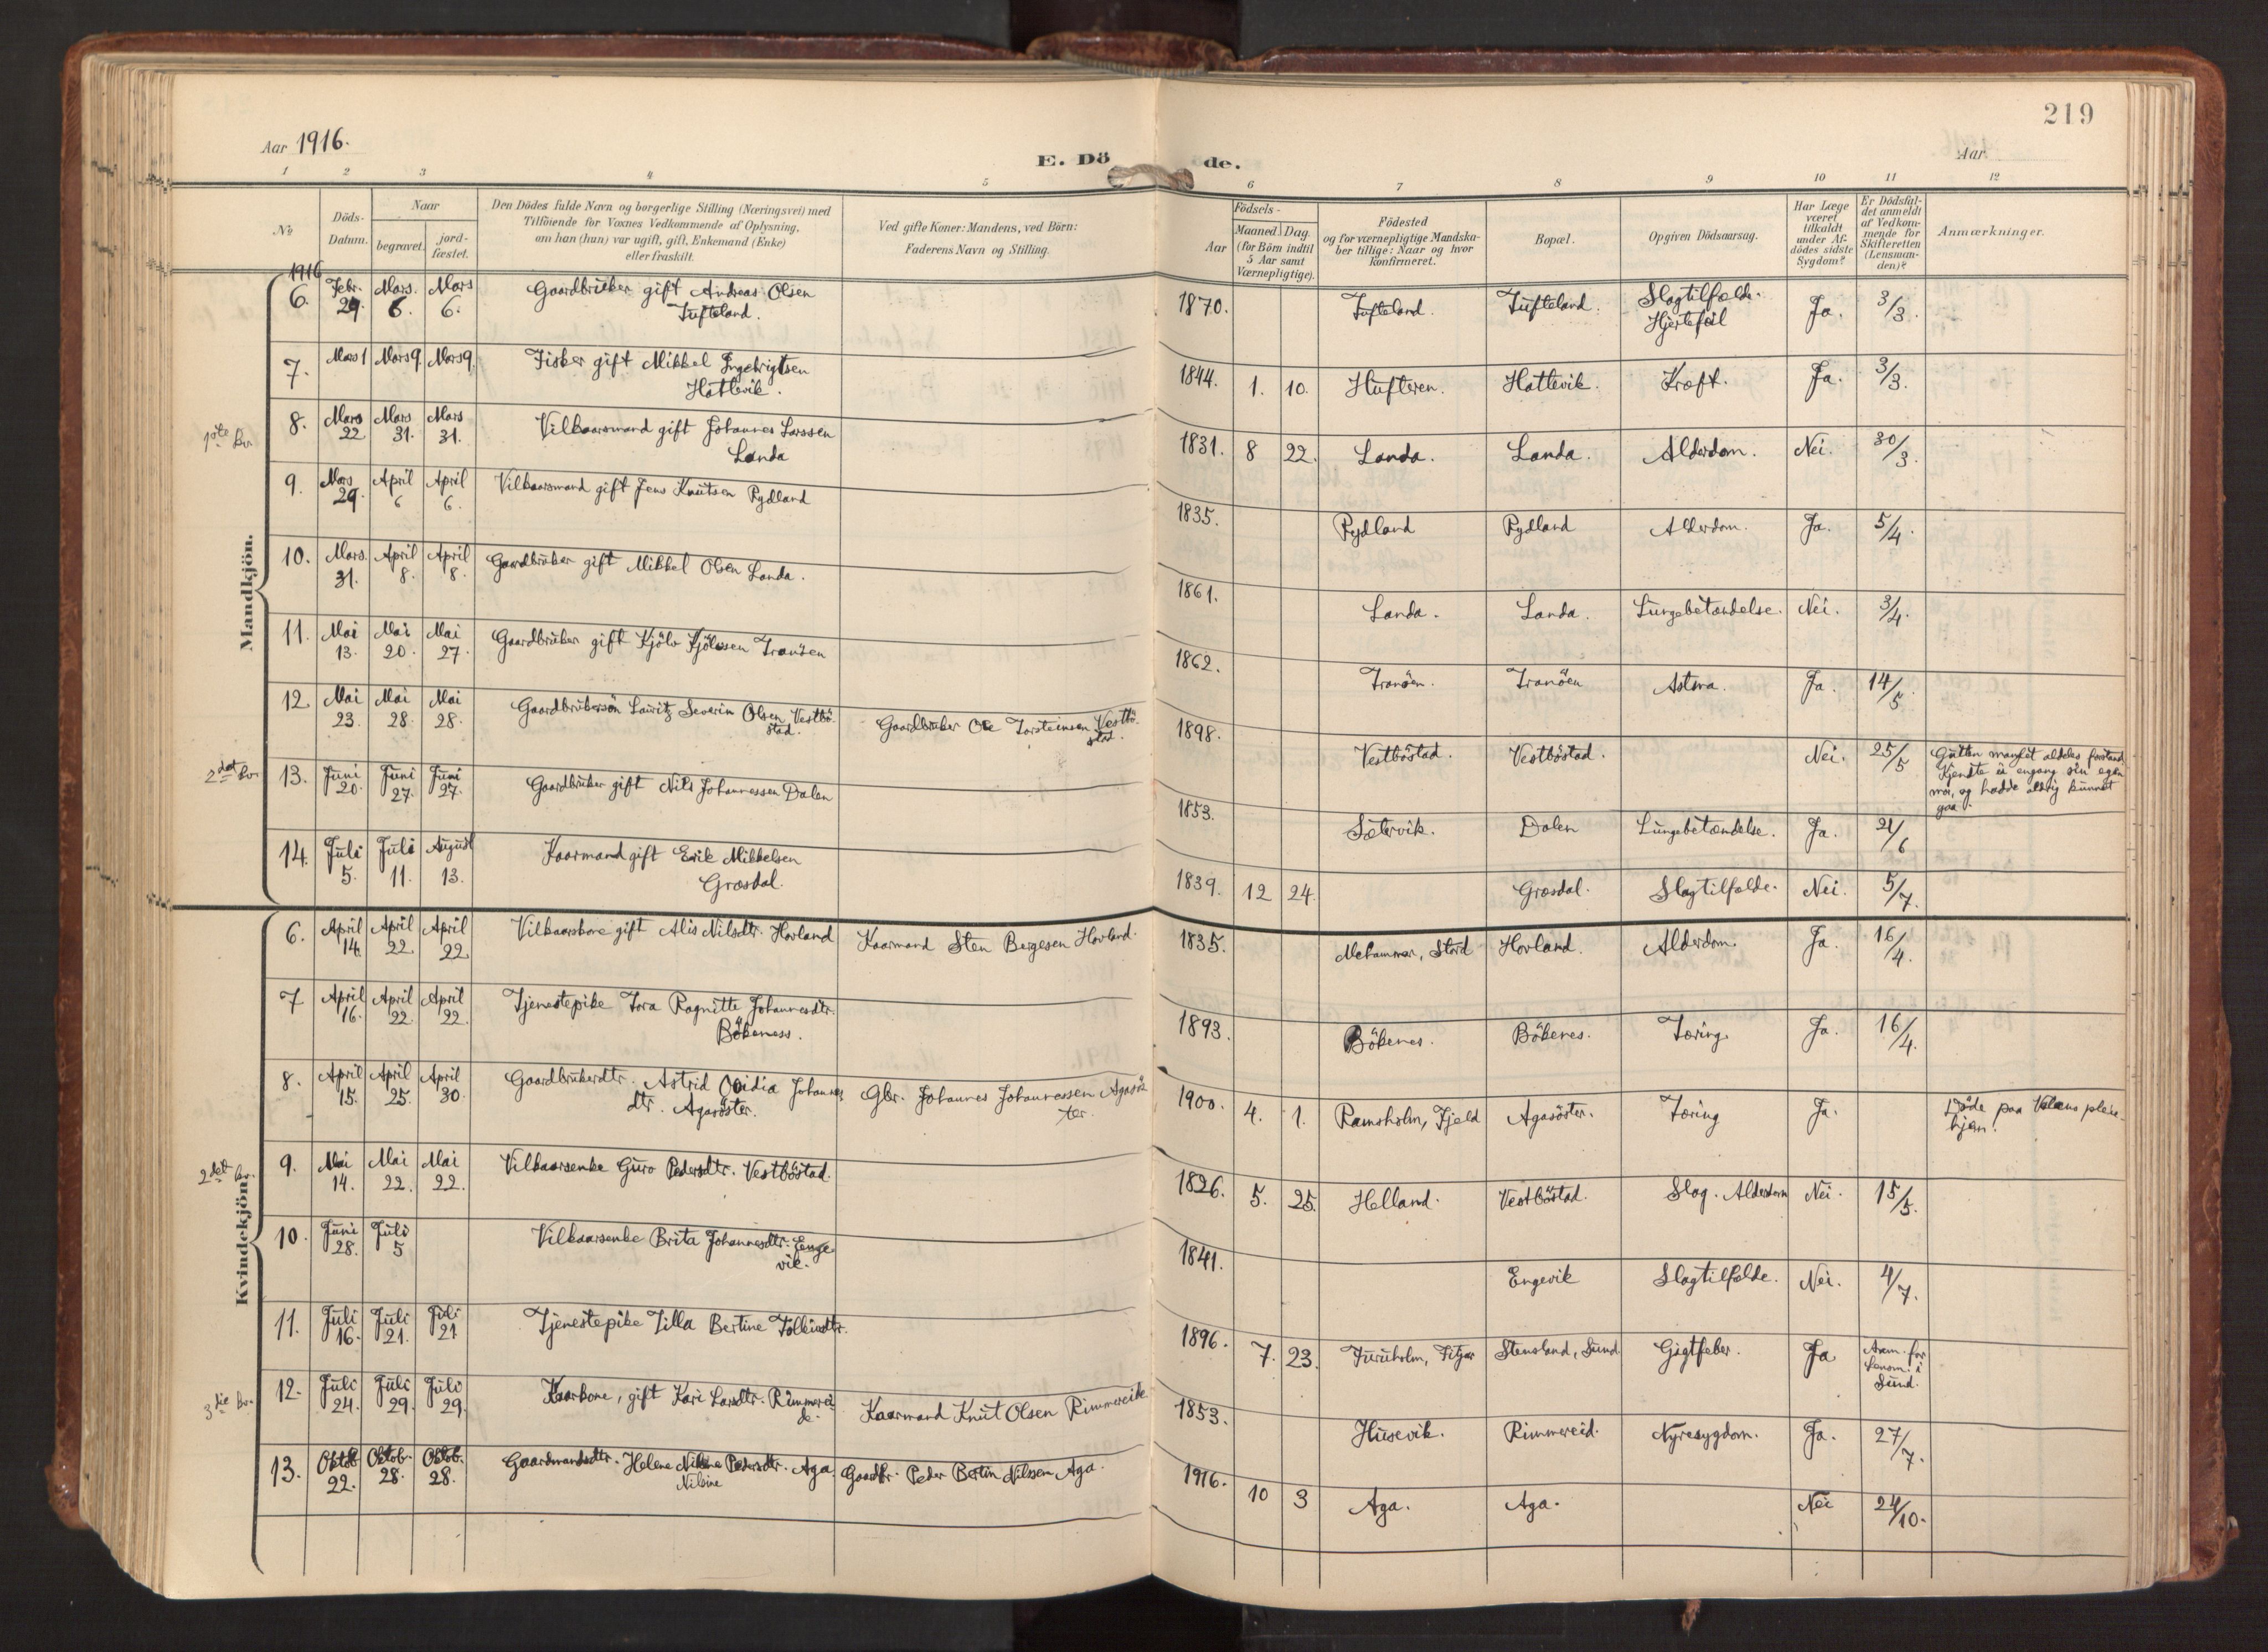 219
Aar 1916.
E. Dö
de.
Aar
1 2 3 4 5 6 7 8 9 10 11 12
No
Döds-
Datum.
Naar
begravet.
jord-
fæstet.
Den Dödes fulde Navn og borgerlige Stilling (Næringsvei) med
Tilföiende for Voxnes Vedkommende af Oplysning,
om han (hun) var ugift, gift, Enkemand (Enke)
eller fraskilt.
Ved gifte Koner: Mandens, ved Börn:
Faderens Navn og Stilling.
Födsels-
Aar
Maaned. Dag.
(for Börn indtil
5 Aar samt
Værnepligtige).
Födested
og for værnepligtige Mandska-
ber tillige: Naar og hvor
konfirmeret.
Bopæl.
Opgiven Dödsaarsag.
Har Læge
været
tilkaldt
under Af-
dödes sidste
Sygdom?
Er Dödsfal-
det anmeldt
af Vedkom-
mende for
Skifteretten
(Lensman-
den)?
Anmærkninger.
Mandkjön.
1916
6. Febr. 29. Mars. 6. Mars 6. Gaardbruker gift Andreas Olsen
Tufteland. 1870. Tufteland. Tufteland. Slagtilfælde.
Hjertefeil Ja. 3/3.
7. Mars 1 Mars 9 Mars 9. Fisker gift Mikkel Ingebrigtsen
Hattevik. 1844. 1. 10. Hufteren. Hattevik. Kræft. Ja. 3/3.
1ste kv.
8. Mars 22 Mars 31. Mars 31. Vilkaarsmand gift Johannes Larssen
Landa 1831. 8 22. Landa. Landa. Alderdom. Nei. 30/3.
9. Mars 29. April 6 April 6. Vilkaarsmand gift Jens Knutsen Rydland 1835. Rydland Rydland Alderdom. Ja. 5/4.
10. Mars. 31. April 8. April 8. Gaardbruker gift Mikkel Olsen Landa. 1861. Landa. Landa. Lungebetændelse. Nei. 3/4.
11. Mai 13. Mai 20. Mai 27. Gaardbruker gift Kjölv Kjölvssen Tranöen 1862. Tranöen. Tranöen Astma. Ja. 14/5.
12. Mai 23. Mai 28. Mai 28. Gaardbrukersön Lauritz Severin Olsen Vestbö-
stad. Gaardbruker Ole Torsteinsen Vestbö-
stad. 1898. Vestböstad. Vestböstad. Nei. 25/5 Gutten manglet aldeles forstand
kjendte ei engang sin egen
mor, og hadde aldrig kunnet
gaa.
2det kv.
13. Juni 20. Juni 27. Juni 27. Gaardbruker gift Nils Johannessen Dalen 1853. Sætervik. Dalen Lungebetændelse. Ja. 21/6
14. Juli 5. Juli 11. August 13. Kaarmand gift Erik Mikkelsen
Græsdal. 1839. 12 24. Græsdal. Slagtilfælde. Nei. 5/7.
Kvindekjön.
6. April 14. April 22. April 22. Vilkaarskone gift Alis Nilsdtr. Hovland Kaarmand Sten Bergesen Hovland. 1835. Mehammer, Stord Hovland. Alderdom. Ja. 16/4.
7 April 16. April 22. April 22. Tjenestepike Tora Ragnitte Johannesdtr.
Bökeness. 1893. Bökenes. Bökenes. Tæring. Ja. 16/4.
8. April 15. April 25. April 30. Gaardbrukerdtr. Astrid Ovidia Johannes
dtr. Agasöster. Gbr. Johannes Johannessen Agasös
ter. 1900. 4. 1. Ramsholm, Fjeld Agasöster. Tæring Ja. Döde paa Valens pleie-
hjem.
2det kv.
9. Mai 14. Mai 22. Mai 22. Vilkaarsenke Guro Pedersdtr. Vestböstad. 1826. 5. 25. Helland. Vestböstad. Slag. Alderdom Nei. 15/5.
10. Juni 28. Juli 5 Vilkaarsenke Brita Johannesdtr. Enge-
vik. 1841. Engevik Slagtilfælde. Nei. 4/7.
11. Juli 16. Juli 21. Juli 21 Tjenestepike Tilla Bertine Tollevsdtr. 1896. 7. 23. Furuholm, Fitjar Stensland, Sund. Gigtfeber. Ja Anm. for
Lensm. i
Sund.
3die kv.
12. Juli 24. Juli 29. Juli 29. Kaarkone, gift Kari Larsdtr. Rimmerei-
de. Kaarmand Knut Olsen Rimmereide 1853. Husevik. Rimmereid. Nyresygdom. Ja. 27/7.
13. Oktob 22. Oktob. 28. Oktob. 28. Gaardmandsdtr. Helene Pedersdtr. Aga.
Nilsine Gaardbr. Peder Bertin Nilssen Aga. 1916. 10 3 Aga. Aga. Nei 24/10.